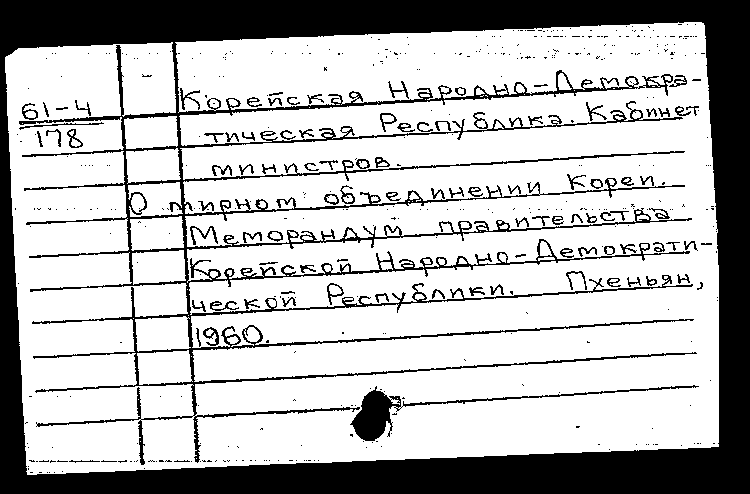 61-4
178
Корейская Народно-Демокра-
тическая Республика. Кабинет
министров.
О мирном объединении Кореи.
Меморандум правительства
Корейской Народно-Демократи-
ческой Республики. Пхеньян,
1960.